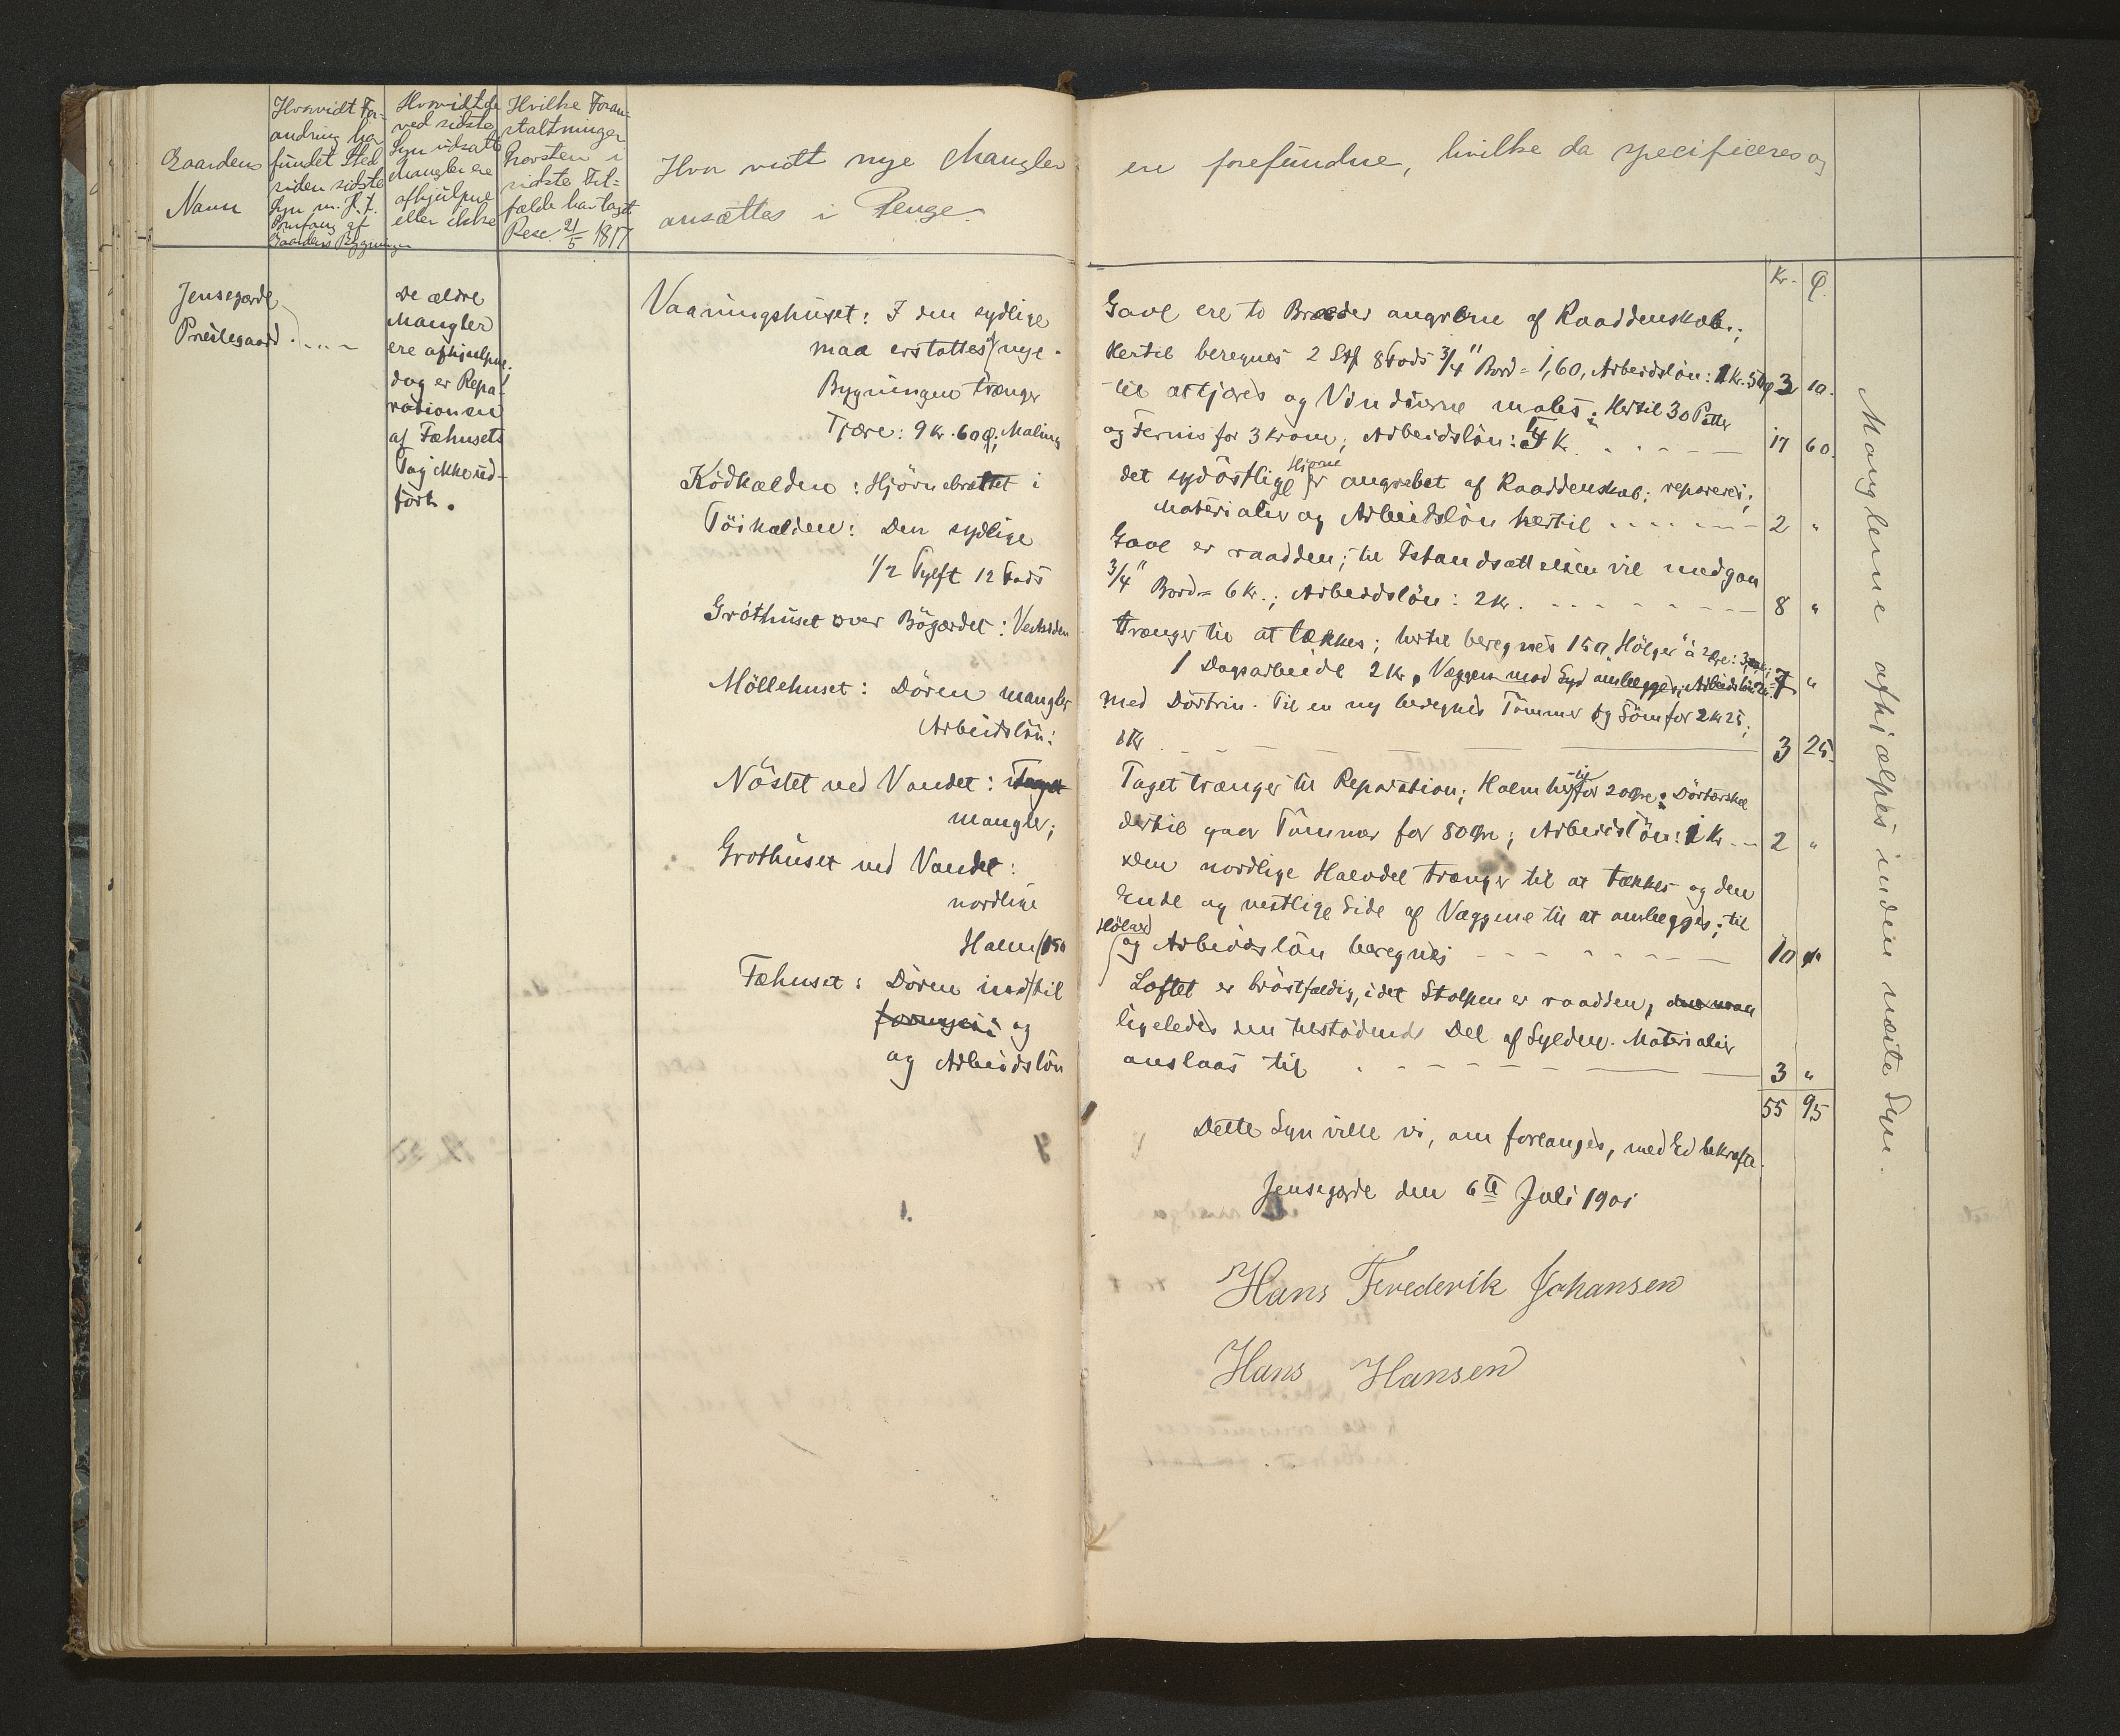 Gaardens
Navn
Hvorvidt For-
andring har
fundet Sted
siden sidste
Syn m. H. t.
Omfang af
Gaardens Bygninger
Hvorvidt de
ved sidste
Syn udsatte
Mangler ere
afhjulpne
eller ikke
Hvilke Foran-
staltninger
Provsten i
sidste Til-
fælde har taget
Resc. 21/5 1817
Hvor vidt nye Mangler ere forefundne, hvilke da specificeres og
ansættes i Penge.
Kr. Ø.
Jensegarde
Præstegaard . . . .
De ældre
Mangler
ere afhjulpne,
dog er Repa-
rationen
af Fæhusets
Tag ikke ud-
ført.
Vaaningshuset: I den sydlige Gavl ere to Bræder angrebne af Raaddenskab;
maa erstattes af nye. Hertil beregnes 2 Stk 8 Fods 3/4" Bord = 1,60, Arbeidslön: 1 Kr. 50 Ø 3 10.
Bygningen trænger til at tjæres og Vinduerne males; Hertil 30 Potter
Tjære: 9 Kr. 60 Ø; Maling og Fernis for 3 Krone; Arbeidslön: 5 Kr. 17 60.
Ködhælden: Hjörnebrættet i det sydöstlige Hjørne er angrebet af Raaddenskab; repareres;
Materialer og Arbeidslön hertil 2 "
Töihælden: Den sydlige Gavl er raadden; til Istandsættelsen vil medgaa
1/2 Tylft 12 Fods 3/4" Bord = 6 Kr.; Arbeidslön: 2 Kr. 8 "
Gróthuset over Bögærdet: Vestsiden trænger til at tækkes; hertil beregnes 150 "Hölger" à 2 Øre: 3 Kr.;
1 Dagsarbeide 2 Kr, Væggen mod Syd omlægges; Arbeidslön 2 Kr. 7 "
Möllehuset: Dören mangler med Dörtrin. Til en ny beregnes Tömmer og Söm for 2 Kr 25;
Arbeidslön: 1 Kr 3 25.
Nöstet ved Vandet: Taget Taget trænger til Reparation; Halm hertil for 20 Øre; Dörtærskel
mangler; dertil gaar Tömmer for 80 Øre; Arbeidslön: 1 Kr 2 "
Grothuset ved Vandet: Den nordlige Halvdel trænger til at tækkes og den
nordlige Ende og vestlige Side af Væggene til at omlægges; til
Halm (150 Hölger) og Arbeidslön beregnes 10 "
Fæhuset: Dören ind til Loftet er bröstfældig, idet Stolpen er raadden,
fornyes; og ligeledes den tilstødende Del af Sylden. Materialier
og Arbeidslön anslaas til 3 "
55 95
Dette Syn ville vi, om forlanges, med Ed bekræfte.
Jensegarde den 6te Juli 1901
Hans Frederik Johansen
Hans Hansen
Manglerne afhjælpes inden næste Syn.